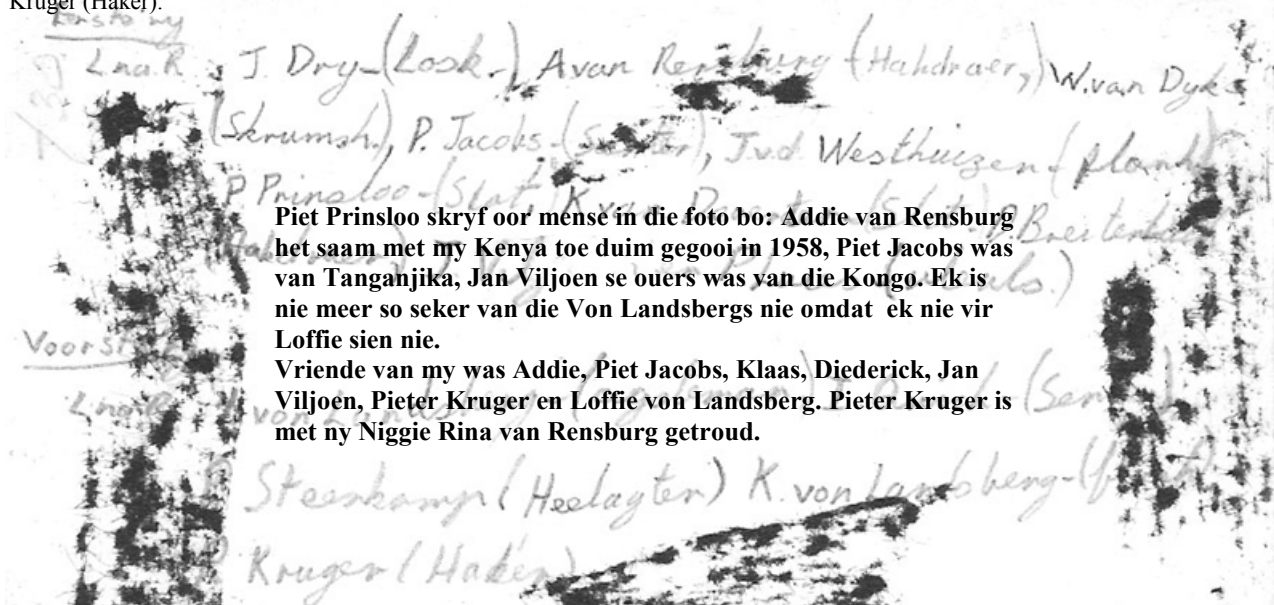 Kruger (Haker).
L na R : J. Dry - (Losk.), A van Rensburg - (Hakdraer,) W. van Dyk
(Skrumsk.), P. Jacobs - (Senter), J.v.d. Westhuizen - (Flank)
P Prinsloo - (Slot, K van (Slot) Breitenb
Piet Prinsloo skryf oor mense in die foto bo: Addie van Rensburg
het saam met my Kenya toe duim gegooi in 1958, Piet Jacobs was
van Tanganjika, Jan Viljoen se ouers was van die Kongo. Ek is
nie meer so seker van die Von Landsbergs nie omdat ek nie vir
Loffie sien nie.
Vriende van my was Addie, Piet Jacobs, Klaas, Diederick, Jan
Viljoen, Pieter Kruger en Loffie von Landsberg. Pieter Kruger is
met ny Niggie Rina van Rensburg getroud.
L na R von (Sen
Steenkamp (Heelagter) K. von Landsberg -
Kruger (Haker)